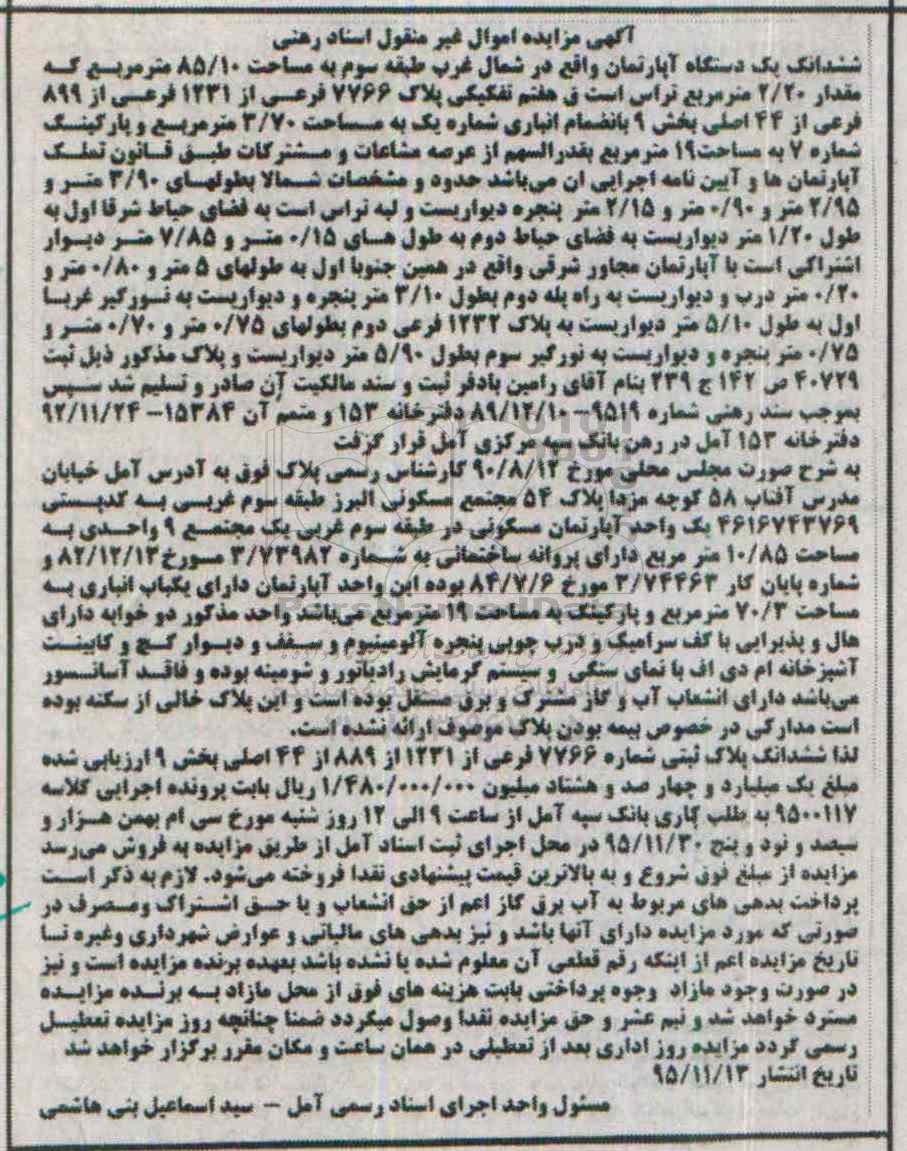 آگهی مزایده اموال غیر منقول اسناد رهنی
ششدانگ یک دستگاه آپارتمان واقع در شمال غرب طبقه سوم به مساحت ۸۵/۱۰ مترمربع که
مقدار ۲/۲۰ مترمربع تراس است ق هفتم تفکیکی پلاک ۷۷۶۶ فرعی از ۱۲۳۱ فرعی از ۸۹۹
فرعی از ۴۴ اصلی بخش ۹ بانضمام انباری شماره یک به مساحت ۳/۷۰ مترمربع و پارکینگ
شماره ۷ به مساحت۱۹ مترمربع بقدرالسهم از عرصه مشاعات و مشترکات طبق قانون تملک
آپارتمان ها و آیین نامه اجرایی ان می‌باشد حدود و مشخصات شمالا بطولهای ۳/۹۰ متر و
۲/۹۵ متر و ۰/۹۰ متر و ۲/۱۵ متر پنجره دیواریست و لبه تراس است به فضای حیاط شرقا اول به
طول ۱/۲۰ متر دیواریست به فضای حیاط دوم به طول های ۰/۱۵ متر و ۷/۸۵ متر دیوار
اشتراکی است با آپارتمان مجاور شرقی واقع در همین جنوبا اول به طولهای ۵ متر و ۰/۸۰ متر و
۰/۲۰ متر درب و دیواریست به راه پله دوم بطول ۳/۱۰ متر پنجره و دیواریست به نورگیر غربا
اول به طول ۵/۱۰ متر دیواریست به پلاک ۱۲۳۲ فرعی دوم بطولهای ۰/۷۵ متر و ۰/۷۰ متر و
۰/۷۵ متر پنجره و دیواریست به نورگیر سوم بطول ۵/۹۰ متر دیواریست و پلاک مذکور ذیل ثبت
۴۰۷۲۹ ص ۱۴۲ ج ۲۳۹ بنام آقای رامین بادفر ثبت و سند مالکیت آن صادر و تسلیم شد سپس
بموجب سند رهنی شماره ۹۵۱۹-۸۹/۱۲/۱۰ دفترخانه ۱۵۳ و متمم آن ۱۵۳۸۴-۹۲/۱۱/۲۴
دفترخانه ۱۵۳ آمل در رهن بانک سپه مرکزی آمل قرار گزفت
به شرح صورت مجلس محلی مورخ ۹۰/۸/۱۲ کارشناس رسمی پلاک فوق به آدرس آمل خیابان
مدرس آفتاب ۵۸ کوچه مزدا پلاک ۵۴ مجتمع مسکونی البرز طبقه سوم غربی به کدپستی
۴۶۱۶۷۴۳۷۶۹ یک واحد آپارتمان مسکونی در طبقه سوم غربی یک مجتمع ۹ واحدی به
مساحت ۱۰/۸۵ متر مربع دارای پروانه ساختمانی به شماره ۳/۷۳۹۸۲ مورخ۸۲/۱۲/۱۳ و
شماره پایان کار ۳/۷۴۴۶۳ مورخ ۸۴/۷/۶ بوده این واحد آپارتمان دارای یکباب انباری به
مساحت ۷۰/۳ مترمربع و پارکینگ به مساحت ۱۹ مترمربع می‌باشد واحد مذکور دو خوابه دارای
هال و پذیرایی با کف سرامیک و درب چوبی پنجره آلومینیوم و سقف و دیوار گچ و کابینت
آشپزخانه ام دی اف با نمای سنگی و سیستم گرمایش رادیاتور و شومینه بوده و فاقد آسانسور
می‌باشد دارای انشعاب آب و گاز مشترک و برق مستقل بوده است و این پلاک خالی از سکنه بوده
است مدارکی در خصوص بیمه بودن پلاک موصوف ارائه نشده است.
لذا ششدانگ پلاک ثبتی شماره ۷۷۶۶ فرعی از ۱۲۳۱ از ۸۸۹ از ۴۴ اصلی بخش ۹ ارزیابی شده
مبلغ یک میلیارد و چهار صد و هشتاد میلیون ۱/۴۸۰/۰۰۰/۰۰۰ ریال بابت پرونده اجرایی کلاسه
۹۵۰۰۱۱۷ به طلب کاری بانک سپه آمل از ساعت ۹ الی ۱۲ روز شنبه مورخ سی ام بهمن هزار و
سیصد و نود و پنج ۹۵/۱۱/۳۰ در محل اجرای ثبت اسناد آمل از طریق مزایده به فروش می‌رسد
مزایده از مبلغ فوق شروع و به بالاترین قیمت پیشنهادی نقدا فروخته می‌شود. لازم به ذکر است
پرداخت بدهی های مربوط به آب برق گاز اعم از حق انشعاب و یا حق اشتراک ومصرف در
صورتی که مورد مزایده دارای آنها باشد و نیز بدهی های مالیاتی و عوارض شهرداری وغیره تا
تاریخ مزایده اعم از اینکه رقم قطعی آن معلوم شده یا نشده باشد بعهده برنده مزایده است و نیز
در صورت وجود مازاد وجوه پرداختی بابت هزینه های فوق از محل مازاد به برنده مزایده
مسترد خواهد شد و نیم عشر و حق مزایده نقدا وصول میگردد ضمنا چنانچه روز مزایده تعطیل
رسمی گردد مزایده روز اداری بعد از تعطیلی در همان ساعت و مکان مقرر برگزار خواهد شد
تاریخ انتشار ۹۵/۱۱/۱۳
مسئول واحد اجرای اسناد رسمی آمل - سید اسماعیل بنی هاشمی